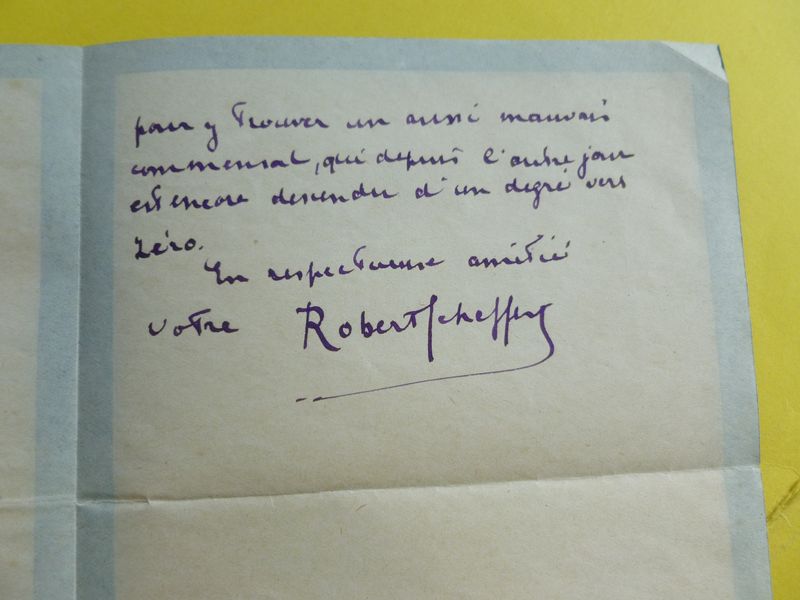 pour y trouver un aussi mauvais
commensal, qui depuis l'autre jour
est encore descendu d'un degré vers
zéro.
En respectueuse amitié
votre Robert Scheffer